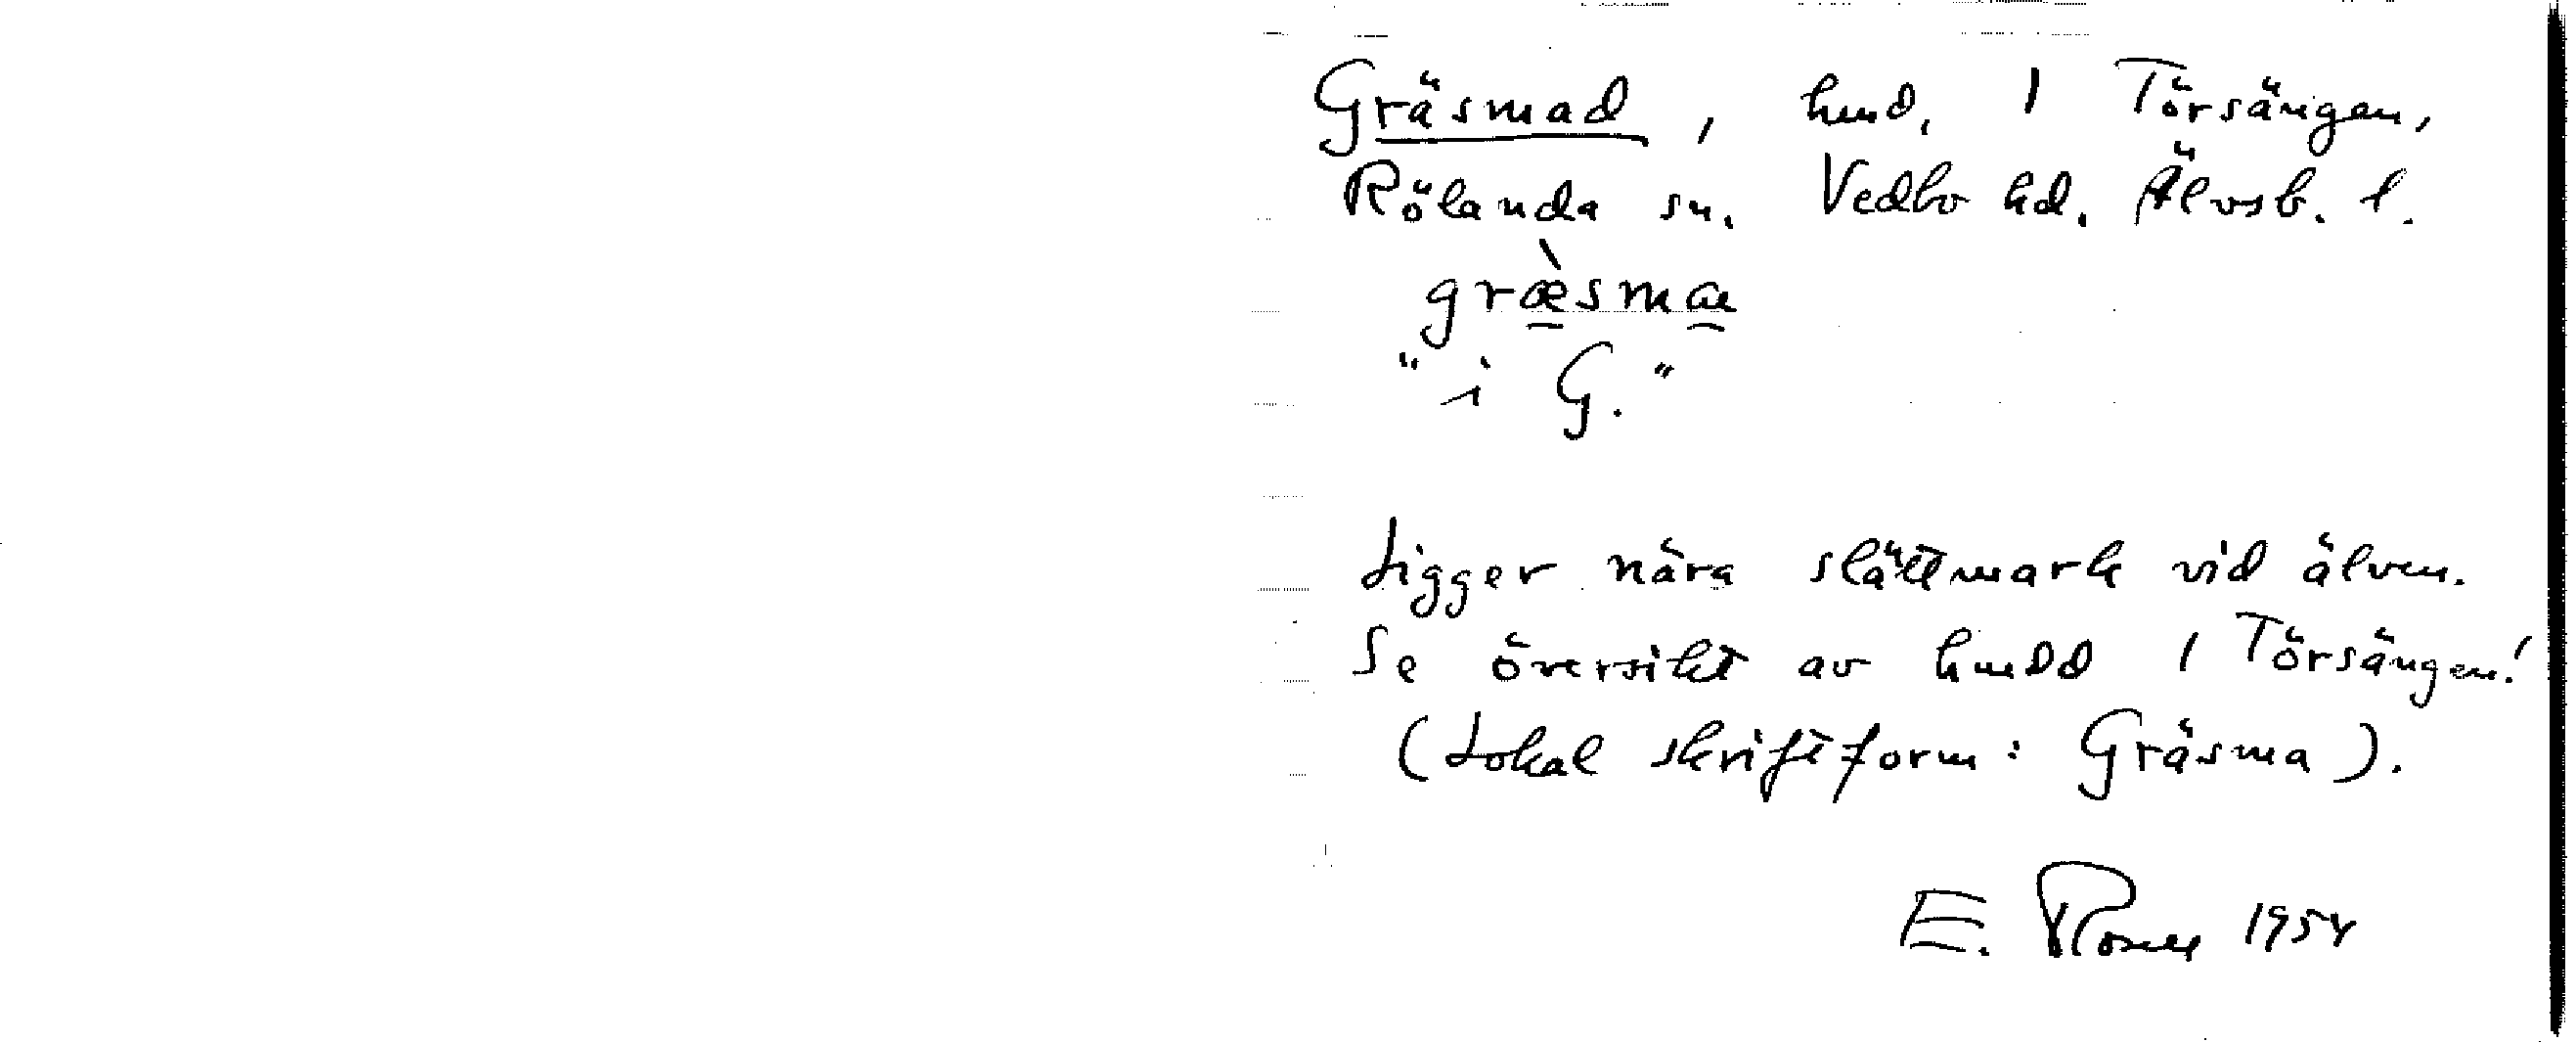 Gräsmad, hmd, 1 Törsängen,
Rölanda sn. Vedbo hd. Älvsb. l.
græ̀smæ
"i G."
Ligger nära slåttmark vid älven.
Se översikt av hmdd 1 Törsängen!
(Lokal skriftform: Gräsma).
E. Rosell 1954